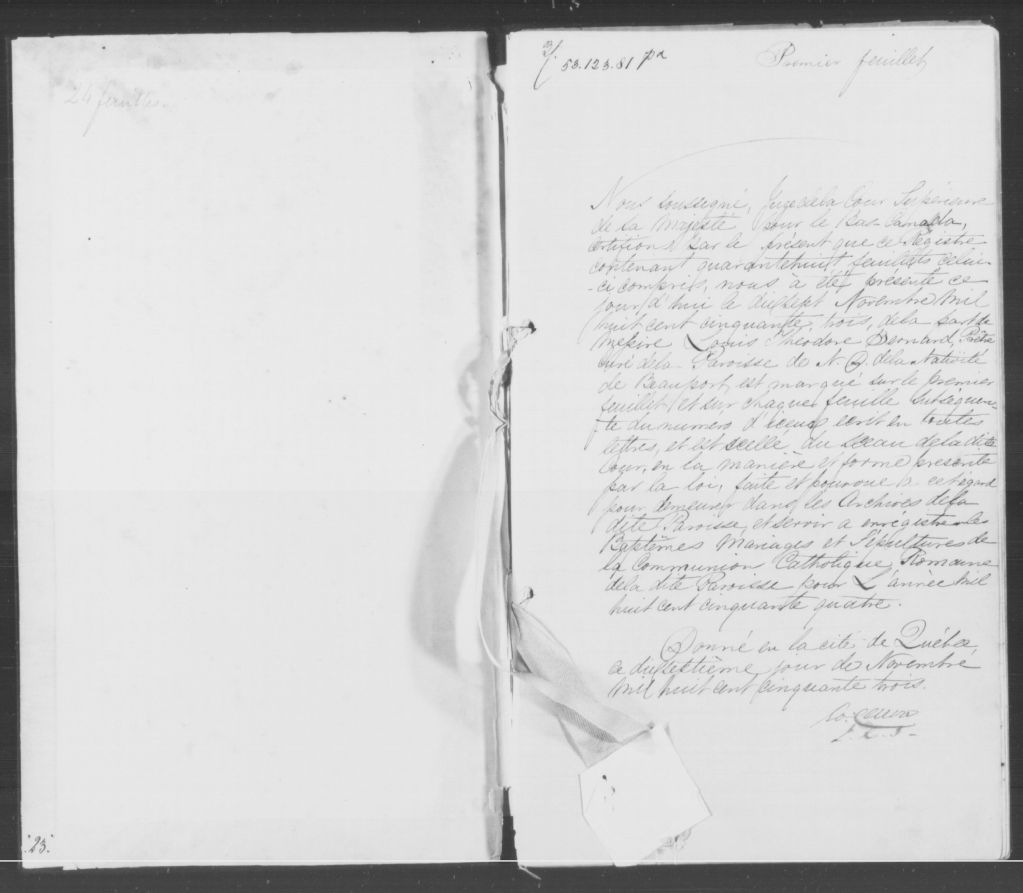 24 feuilles.
23.
53.123.81 pa
Premier feuillet
Nous soussigné, Juge de la Cour Supérieure
de la Majesté pour le Bas-Canada,
certifions par le présent que ce Registre
contenant quarantehuit feuillets celui-
-ci compris, nous à été présenté ce
jour d'hui le dixsept Novembre Mil
huit cent cinquante trois, de la part de
Messire Louis Théodore Bernard, Prêtre
curé de la Paroisse de N. D. de la Nativité
de Beauport, est marqué sur le premier
feuillet et sur chaque feuille subséquen-
te du numero d'iceux écrit en toutes
lettres, et est scellé du sceau de la dite
Cour, en la manière et forme présente
par la loi, faite et pourvue a cet égard
pour demeurer dans les Archives de la
dite Paroisse, et servir a enrégistrer les
Baptêmes Mariages et Sépultures de
la Communion Catholique, Romaine
de la dite Paroisse pour L'année Mil
huit cent cinquante quatre.
Donné en la cité de Québec,
ce dixseptième jour de Novembre
Mil huit cent cinquante trois.